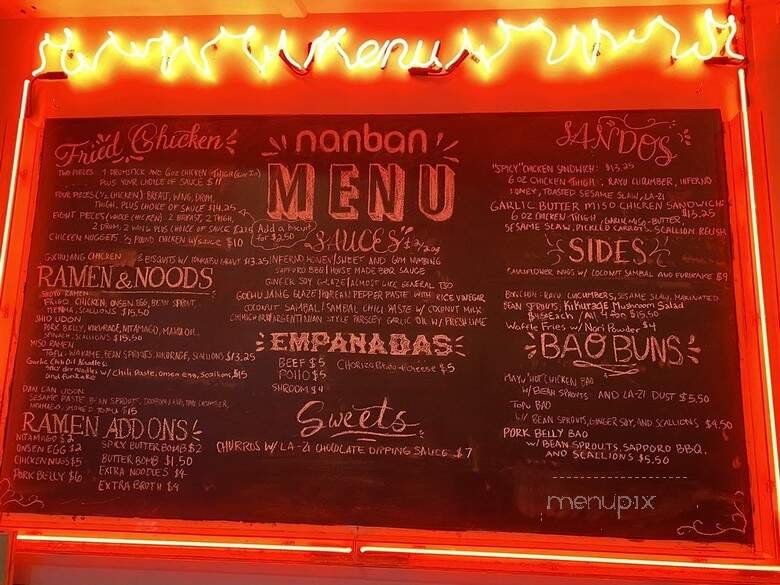 Menu
Fried Chicken
TWO PIECES 1 DRUMSTICK AND 6OZ CHICKEN THIGH
PLUS YOUR CHOICE OF SAUCE $11
FOUR PIECES (½ CHICKEN) BREAST, WING, DRUM,
THIGH, PLUS CHOICE OF SAUCE $14.25
EIGHT PIECES (WHOLE CHICKEN) 2 BREAST, 2 THIGH,
2 DRUM, 2 WING PLUS CHOICE OF SAUCE
Add a biscuit
for $2.50
CHICKEN NUGGETS ½ POUND CHICKEN W/SAUCE $10
GOCHUJANG CHICKEN & BISCUITS W/ $13.25
RAMEN & NOODS
SHOYU RAMEN
FRIED CHICKEN, ONSEN EGG, BEAN SPROUT,
MENMA, SCALLIONS $15.50
SHIO UDON
PORK BELLY, KIKURAGE, NITAMAGO, MAYU OIL,
SPINACH, SCALLIONS $15.50
MISO RAMEN
TOFU, WAKAME, BEAN SPROUTS, KIKURAGE, SCALLIONS $13.25
Garlic Chili Oil Noodles
w/ Chili Paste, onsen egg, Scallions, $15
and furikake
DAN DAN UDON
SESAME PASTE, BEAN SPROUT, CUCUMBER,
NITAMAGO, SMOKED TOFU $15
RAMEN ADD ONS
NITAMAGO $2
ONSEN EGG $2
CHICKEN NUGS $5
PORK BELLY $6
SPICY BUTTER BOMB $2
BUTTER BOMB $1.50
EXTRA NOODLES $4
EXTRA BROTH $4
nanban
MENU
SAUCES
INFERNO HONEY/SWEET AND NUMBING
SAPPORO BBQ/HOUSE MADE BBQ SAUCE
GINGER SOY GLAZE/ALMOST LIKE GENERAL TSO
GOCHUJANG GLAZE/KOREAN PEPPER PASTE WITH RICE VINEGAR
COCONUT SAMBAL/SAMBAL CHILI PASTE W/ COCONUT MILK
CHIMICHURRI/ARGENTINIAN STYLE PARSLEY GARLIC OIL W/ FRESH LIME
EMPANADAS
BEEF $5
POLLO $5
SHROOM $4
Chorizo Potato + Cheese $5
Sweets
CHURROS W/ LA-ZI CHOCOLATE DIPPING SAUCE $7
SANDOS
"SPICY" CHICKEN SANDWICH: $13.25
6 OZ CHICKEN THIGH, RAYU CUCUMBER, INFERNO
HONEY, TOASTED SESAME SLAW, LA-ZI
GARLIC BUTTER MISO CHICKEN SANDWICH
6 OZ CHICKEN THIGH, GARLIC MISO-BUTTER, $13.25
SESAME SLAW, PICKLED CARROTS, SCALLION RELISH
SIDES
CAULIFLOWER NUGS W/ COCONUT SAMBAL AND FURIKAKE $9
BANCHAN: RAYU CUCUMBERS, SESAME SLAW, MARINATED
BEAN SPROUTS, KIKURAGE Mushroom Salad
$4.50 Each / All 4 for $15.50
Waffle Fries w/ Nori Powder $4
BAO BUNS
MAYU "HOT" CHICKEN BAO
W/ BEAN SPROUTS AND LA-ZI DUST $5.50
TOFU BAO
W/ BEAN SPROUTS, GINGER SOY, AND SCALLIONS $4.50
PORK BELLY BAO
W/ BEAN SPROUTS, SAPPORO BBQ,
AND SCALLIONS $5.50
menupix